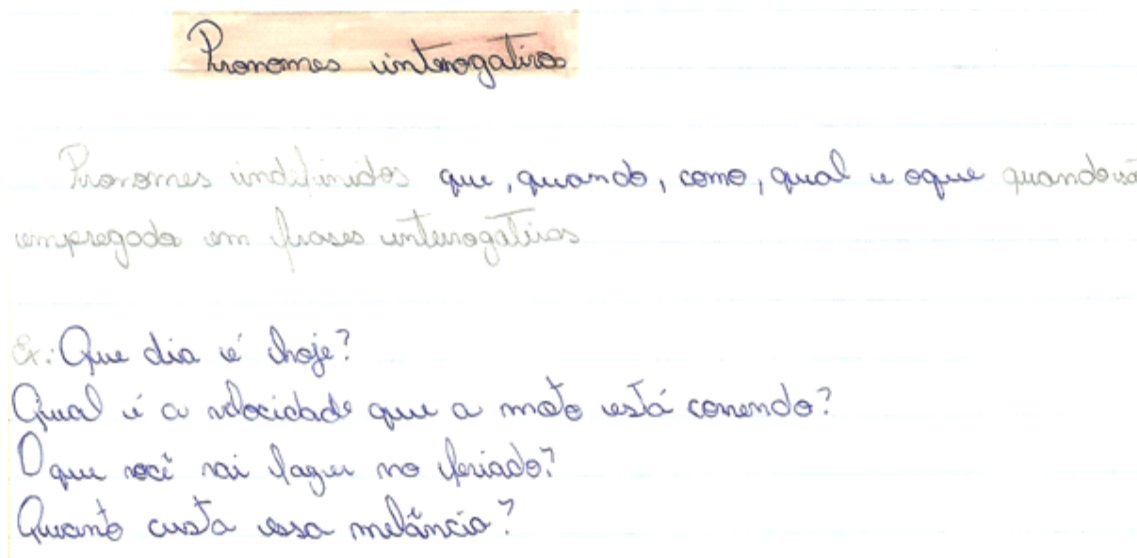 Pronomes interrogativos
Pronomes indefinidos que, quando, como, qual e oque quando são
empregado em frases interrogativas
Ex: Que dia é hoje?
Qual é a velocidade que a moto está correndo?
O que você vai fazer no feriado?
Quanto custa essa melância?